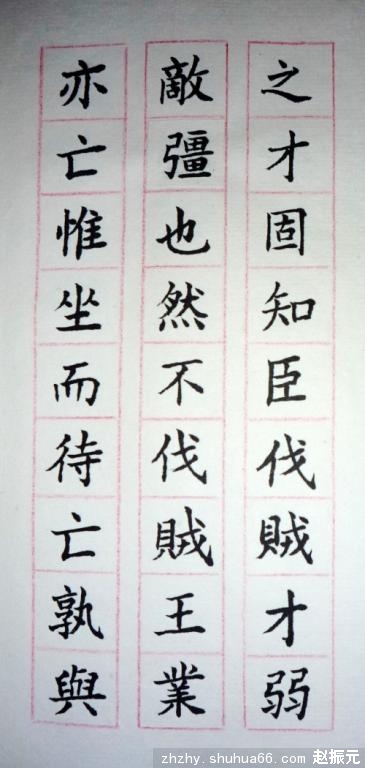 之才固知臣伐賊才弱
敵彊也然不伐賊王業
亦亡惟坐而待亡孰與
zhzhy.shuhua66.com 赵振元